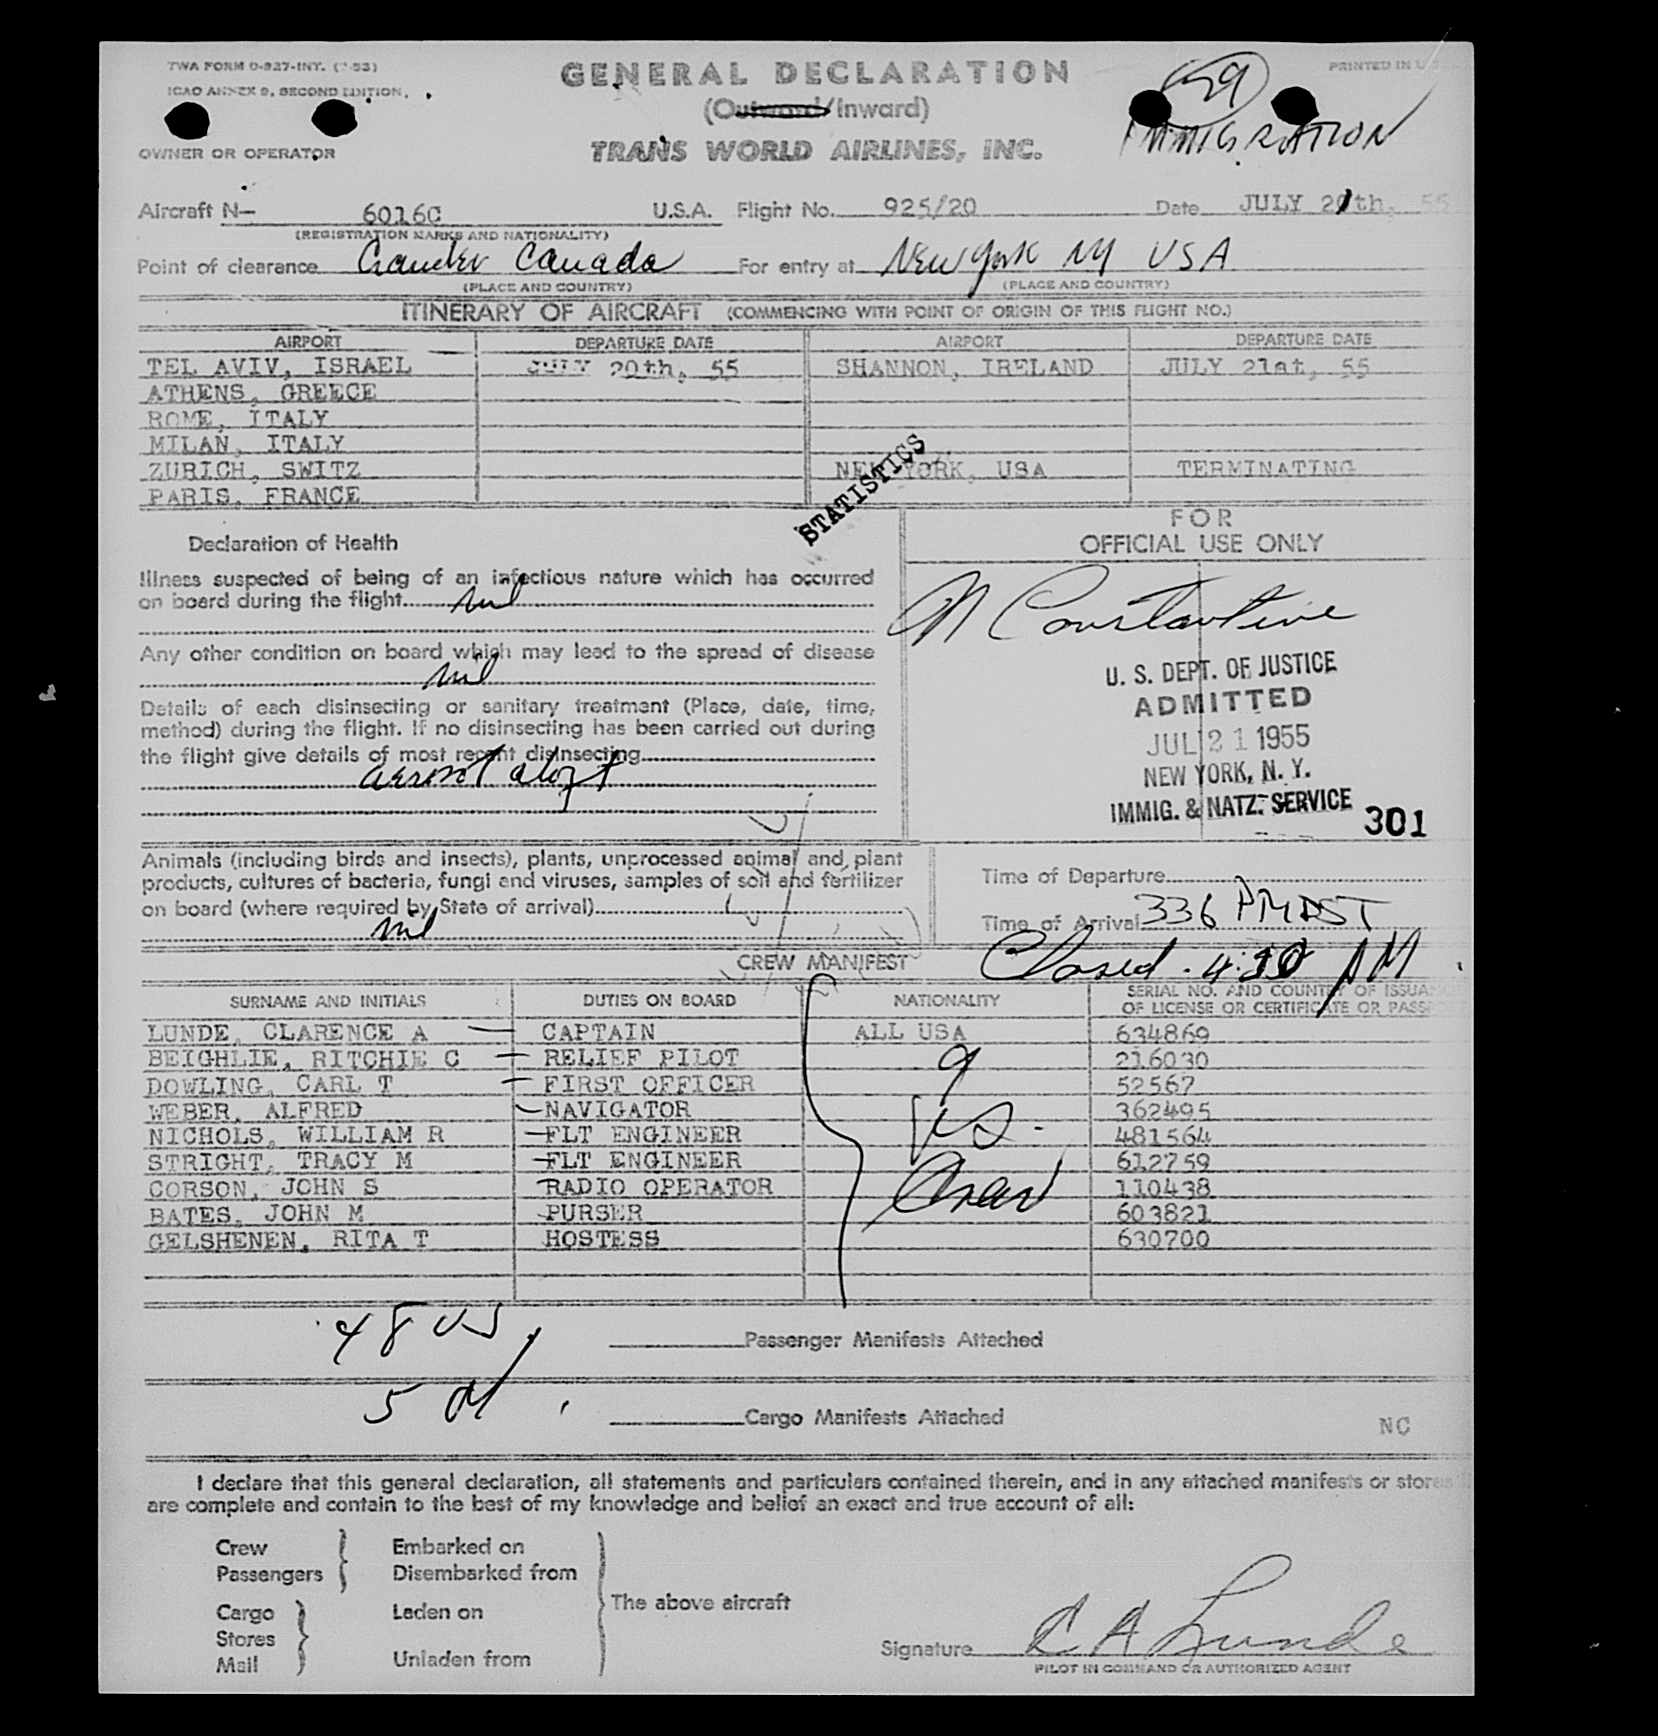 TWA FORM O-827-INT.
ICAO ANNEX 9, SECOND EDITION.
GENERAL DECLARATION
(Outward/Inward)
TRANS WORLD AIRLINES, INC.
59
IMMIGRATION
PRINTED IN U.S.
OWNER OR OPERATOR
Aircraft N— 6016C U.S.A. Flight No. 925/20 Date JULY 21th, 55
(REGISTRATION MARKS AND NATIONALITY)
Point of clearance Gander Canada For entry at New York NY USA
(PLACE AND COUNTRY) (PLACE AND COUNTRY)
ITINERARY OF AIRCRAFT (COMMENCING WITH POINT OF ORIGIN OF THIS FLIGHT NO.)
AIRPORT DEPARTURE DATE AIRPORT DEPARTURE DATE
TEL AVIV, ISRAEL JULY 20th, 55 SHANNON, IRELAND JULY 21st, 55
ATHENS, GREECE
ROME, ITALY
MILAN, ITALY
ZURICH, SWITZ NEW YORK, USA TERMINATING
PARIS, FRANCE
STATISTICS
FOR
OFFICIAL USE ONLY
Declaration of Health
Illness suspected of being of an infectious nature which has occurred
on board during the flight nil
Any other condition on board which may lead to the spread of disease
nil
Details of each disinsecting or sanitary treatment (Place, date, time,
method) during the flight. If no disinsecting has been carried out during
the flight give details of most recent disinsecting
aloft
M Constantine
U. S. DEPT. OF JUSTICE
ADMITTED
JUL 21 1955
NEW YORK, N. Y.
IMMIG. & NATZ. SERVICE 301
Animals (including birds and insects), plants, unprocessed animal and plant
products, cultures of bacteria, fungi and viruses, samples of soil and fertilizer
on board (where required by State of arrival)
nil
Time of Departure
Time of Arrival 336 PM DST
Closed 4:30 PM
CREW MANIFEST
SURNAME AND INITIALS DUTIES ON BOARD NATIONALITY SERIAL NO. AND COUNTRY OF ISSUA
OF LICENSE OR CERTIFICATE OR PASS
LUNDE, CLARENCE A CAPTAIN ALL USA 634869
BEIGHLIE, RITCHIE C RELIEF PILOT 216030
DOWLING, CARL T FIRST OFFICER 52567
WEBER, ALFRED NAVIGATOR 362495
NICHOLS, WILLIAM R FLT ENGINEER 481564
STRIGHT, TRACY M FLT ENGINEER 612759
CORSON, JOHN S RADIO OPERATOR 110438
BATES, JOHN M PURSER 603821
GELSHENEN, RITA T HOSTESS 630700
9
US
Crew
48 US
Passenger Manifests Attached
5 Al
Cargo Manifests Attached
NC
I declare that this general declaration, all statements and particulars contained therein, and in any attached manifests or stores
are complete and contain to the best of my knowledge and belief an exact and true account of all:
Crew
Passengers
Embarked on
Disembarked from
Cargo
Stores
Mail
Laden on
Unladen from
The above aircraft
Signature C A Lunde
PILOT IN COMMAND OR AUTHORIZED AGENT